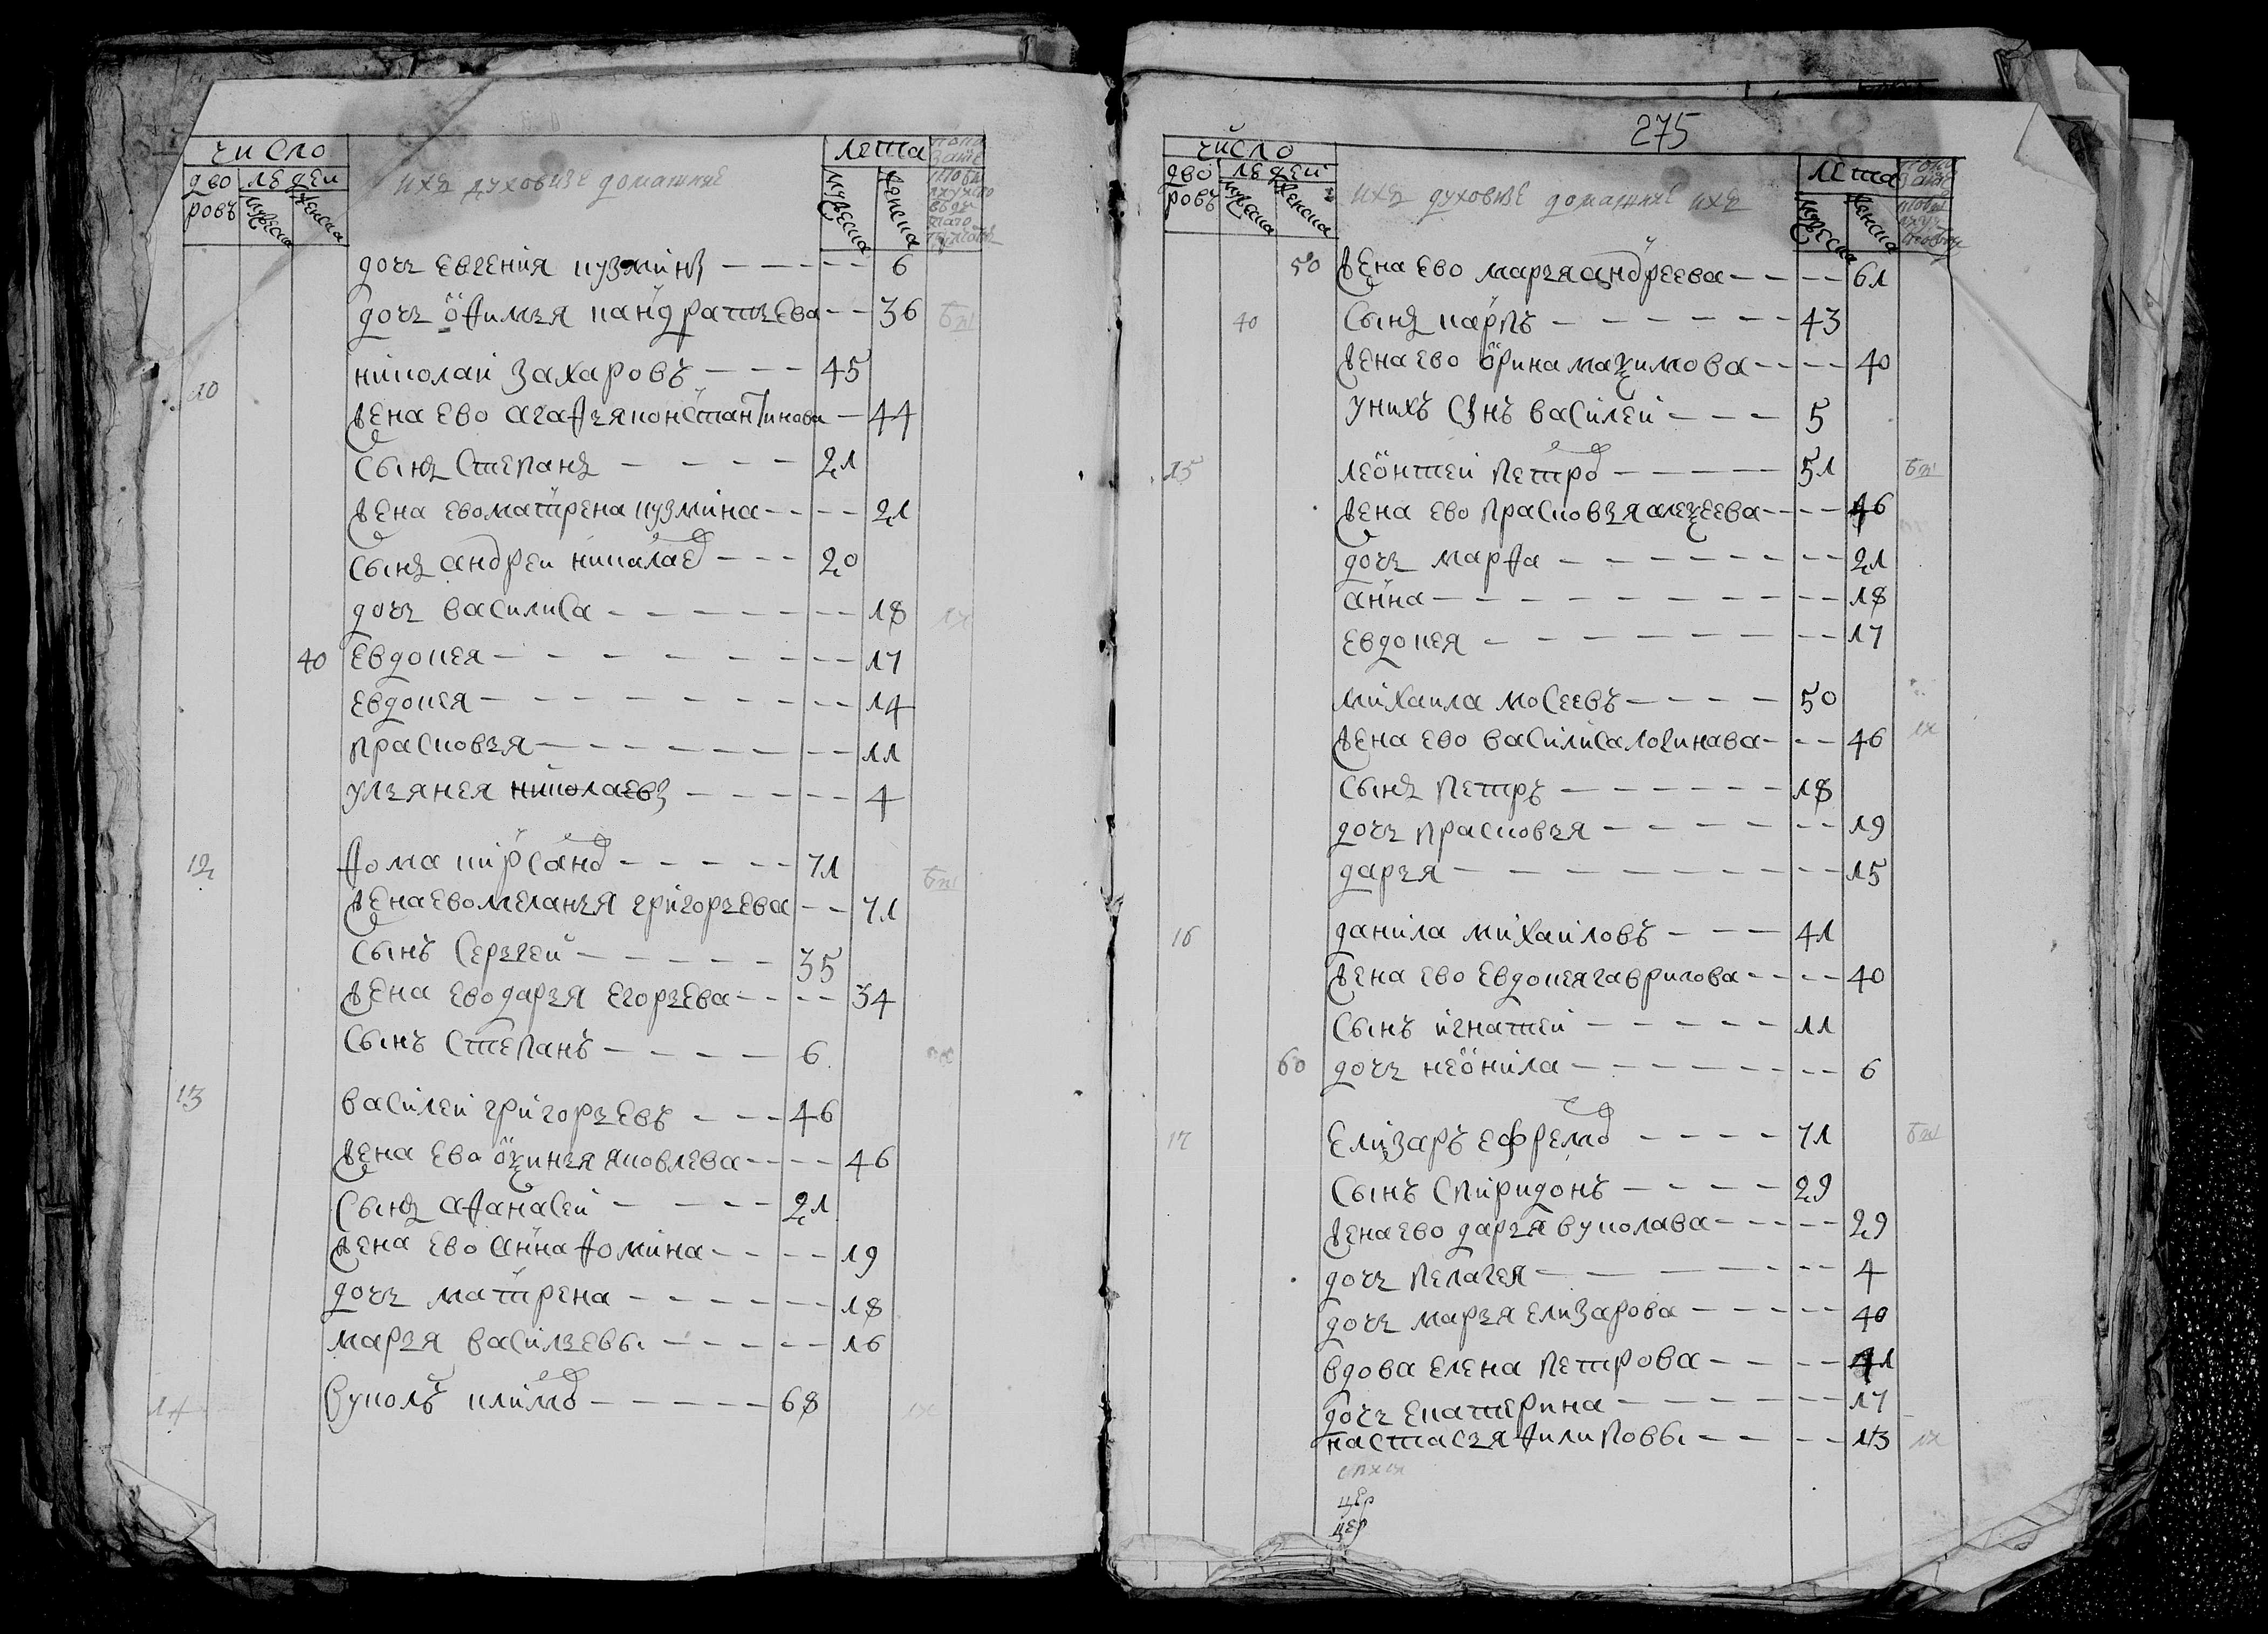 число
дворовъ людей мужеска женска
ихъ духовные домашные
лета мужеска женска
дочь евгения кузмины 6
дочь офимья кандратьева 36
10 николаи захаровъ 45
жена ево агафья константинова 44
сынъ степанъ 21
жена ево матрена кузмина 21
сынъ андреи николаев 20
дочь василиса 18
40 евдокея 17
евдокея 14
прасковья 11
ульянея николаевы 4
12 фома кирсанов 71
жена ево меланья григорьева 71
сынъ серьгеи 35
жена ево дарья егорьева 34
сынъ степанъ 6
13 василеи григорьевъ 46
жена ево оксинья яковлева 46
сынъ афанасеи 21
жена ево анна фомина 19
дочь матрена 18
марья васильевы 16
14 вуколъ климов 68
275
число
дворовъ людей мужеска женска
ихъ духовные домашные ихъ
лета мужеска женска
50 жена ево марья андреева 61
40 сынъ карпъ 43
жена ево орина максимова 40
у нихъ сынъ василеи 5
15 леонтеи петров 51
жена ево прасковья алексеева 46
дочь марфа 21
анна 18
евдокея 17
михаила мосеевъ 50
жена ево василиса логинава 46
сынъ петръ 18
дочь прасковья 19
дарья 15
16 данила михаиловъ 41
жена ево евдокея гаврилова 40
сынъ игнатеи 11
60 дочь неонила 6
17 елизаръ ефремов 71
сынъ спиридонъ 29
жена ево дарья вуколава 29
дочь пелагея 4
дочь марья елизарова 40
вдова елена петрова 41
дочь екатерина 17
настасья филиповы 13
цер
цер